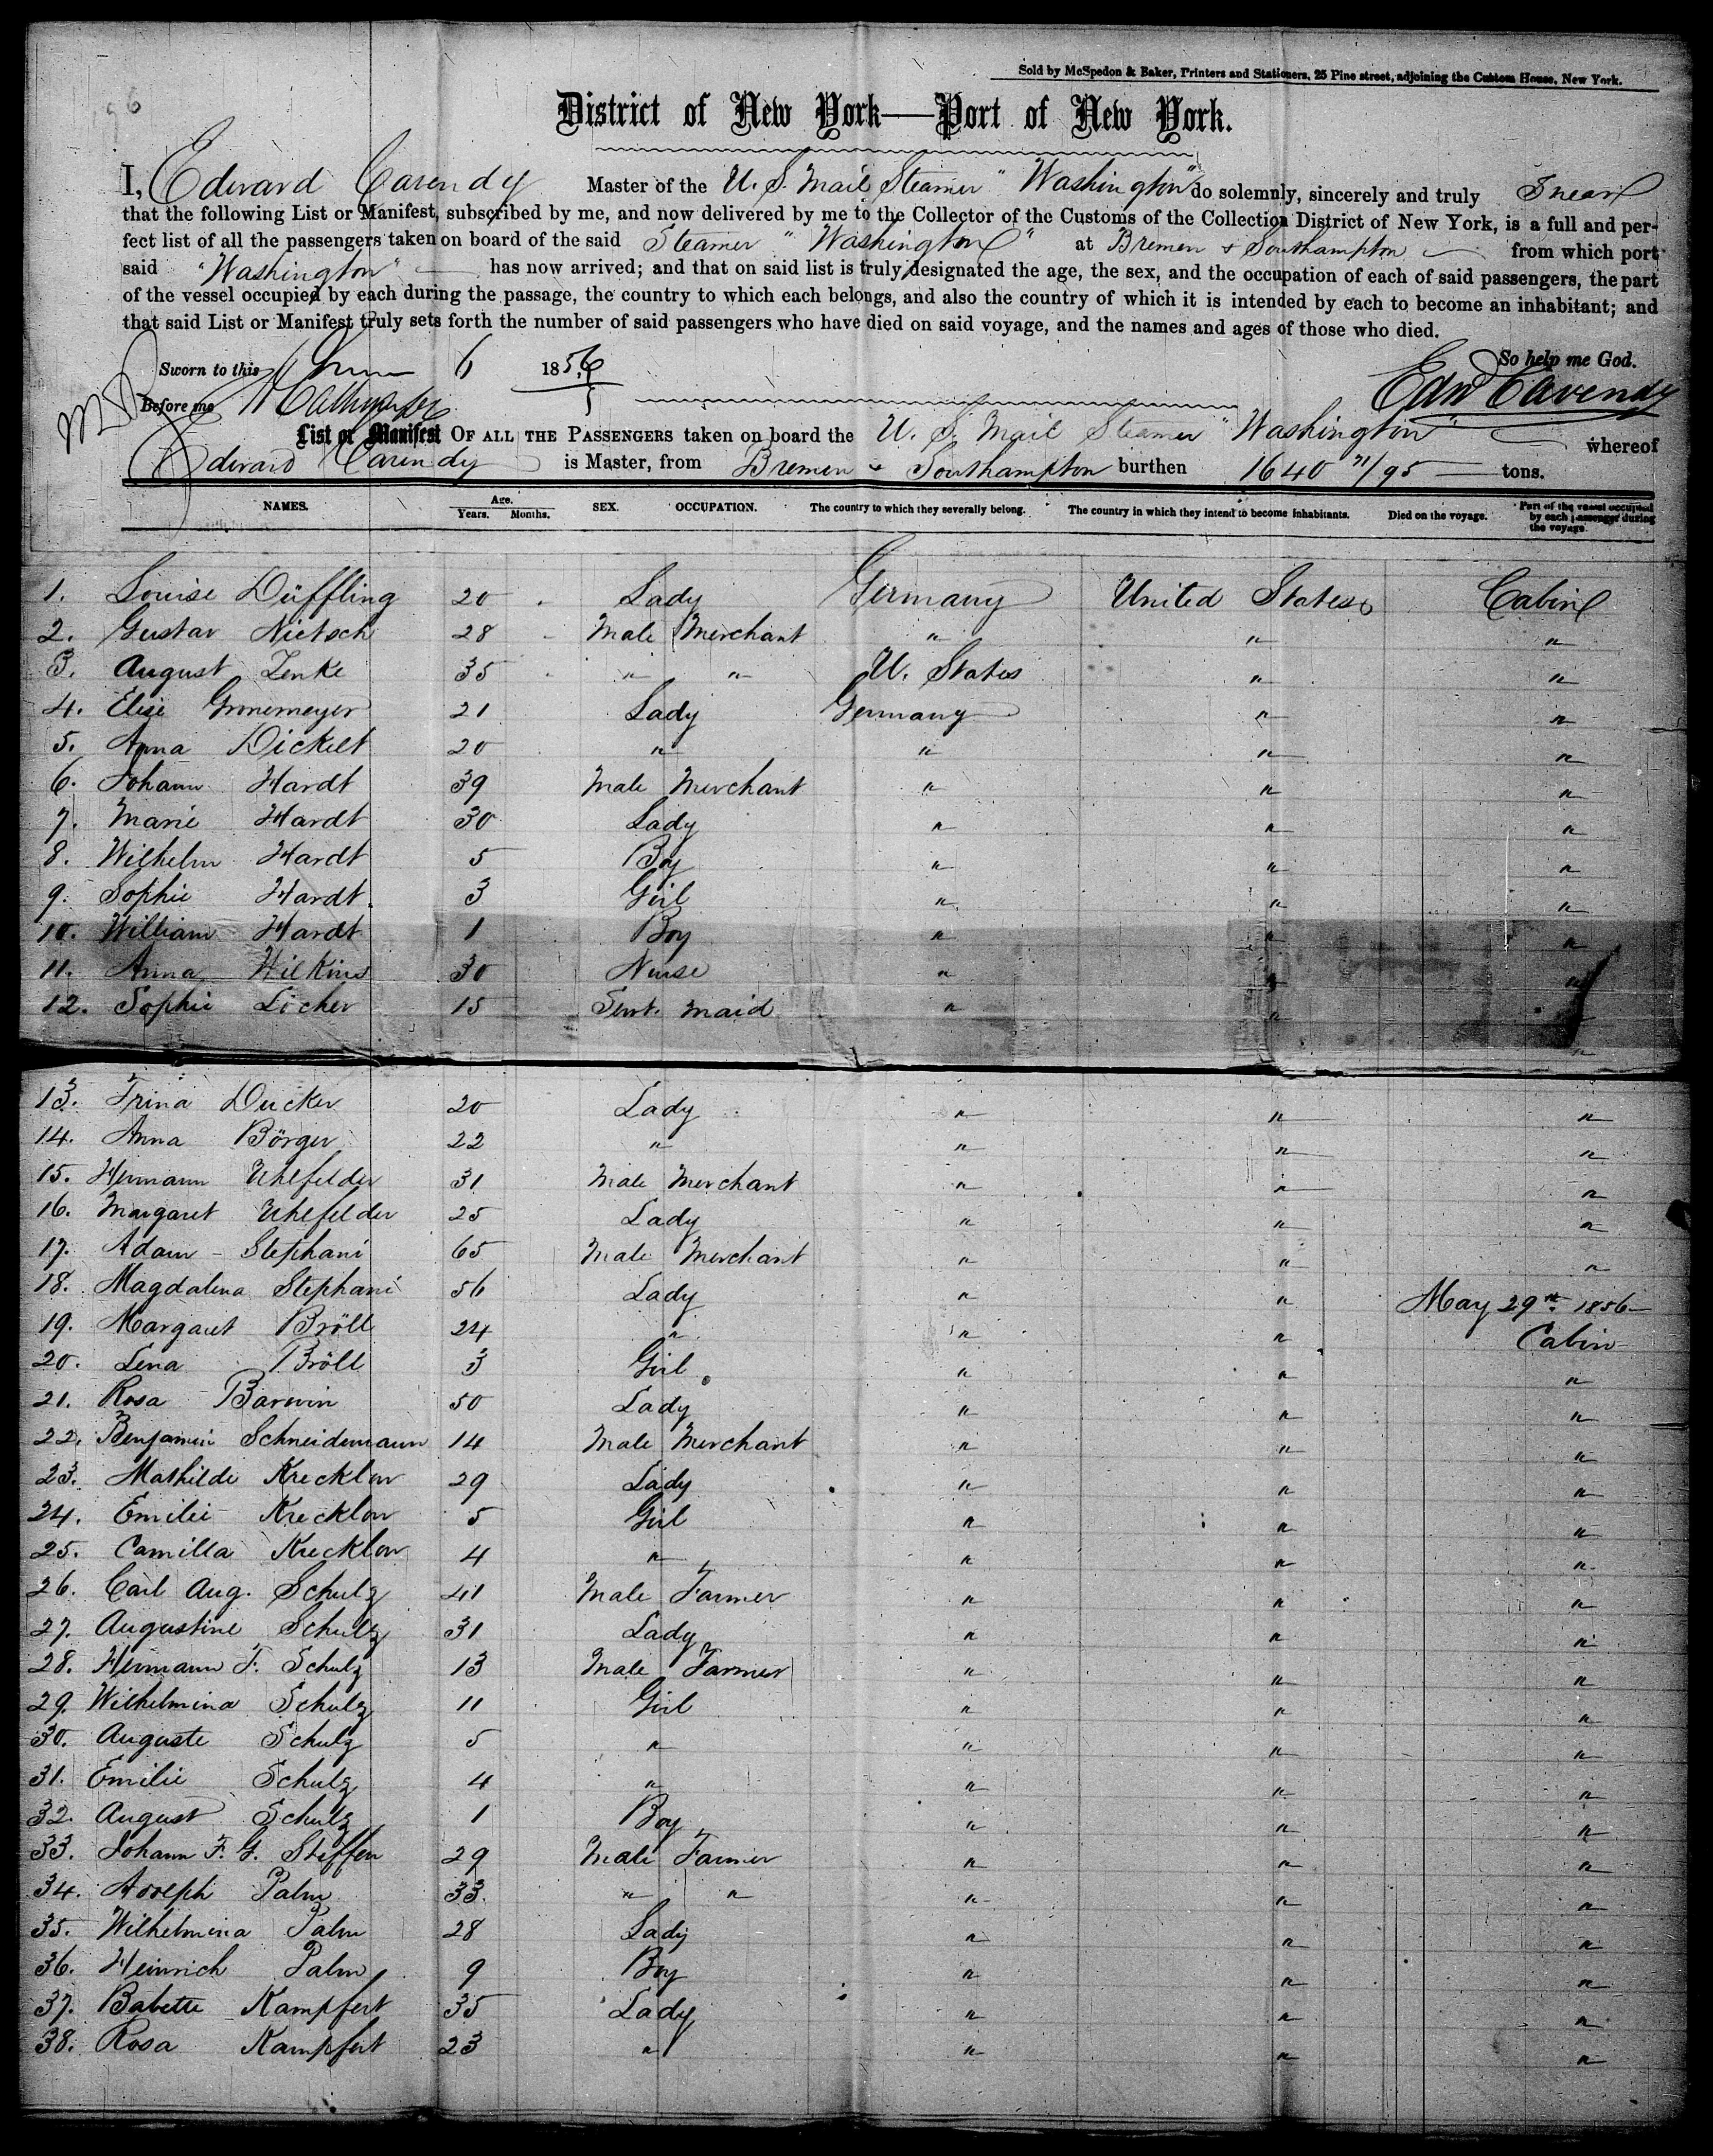 Sold by McSpedon & Baker, Printers and Stationers, 25 Pine street, adjoining the Custom House, New York.
District of New York—Port of New York.
I, Edward Cavendy Master of the U. S. Mail Steamer "Washington" do solemnly, sincerely and truly Swear
that the following List or Manifest, subscribed by me, and now delivered by me to the Collector of the Customs of the Collection District of New York, is a full and per-
fect list of all the passengers taken on board of the said Steamer "Washington" at Bremen & Southampton from which port
said "Washington" has now arrived; and that on said list is truly designated the age, the sex, and the occupation of each of said passengers, the part
of the vessel occupied by each during the passage, the country to which each belongs, and also the country of which it is intended by each to become an inhabitant; and
that said List or Manifest truly sets forth the number of said passengers who have died on said voyage, and the names and ages of those who died.
Sworn to this June 6 1856 So help me God.
Before me Edw Cavendy
List or Manifest OF ALL THE PASSENGERS taken on board the U. S. Mail Steamer "Washington" whereof
Edward Cavendy is Master, from Bremen & Southampton burthen 1640 71/95 tons.
NAMES. Age. Years. Months. SEX. OCCUPATION. The country to which they severally belong. The country in which they intend to become inhabitants. Died on the voyage. Part of the vessel occupied by each passenger during the voyage.
1. Louise Düffling 20 Lady Germany United States Cabin
2. Gustav Nietsch 28 Male Merchant " " "
3. August Zenke 35 " " U. States " "
4. Elise Gronemeyer 21 Lady Germany " "
5. Anna Dickelt 20 " " " "
6. Johann Hardt 39 Male Merchant " " "
7. Marie Hardt 30 Lady " " "
8. Wilhelm Hardt 5 Boy " " "
9. Sophie Hardt. 3 Girl " " "
10. William Hardt 1 Boy " " "
11. Anna Wilkins 30 Nurse " " "
12. Sophie Locher 15 Servt. maid " " "
13. Trina Ducker 20 Lady " " "
14. Anna Börger 22 " " " "
15. Hermann Uhlfelder 31 Male Merchant " " "
16. Margaret Uhlfelder 25 Lady " " "
17. Adam Stephani 65 Male Merchant " " "
18. Magdalena Stephani 56 Lady " " May 29st 1856
19. Margaret Bröll 24 " " " Cabin
20. Lena Bröll 3 Girl " " "
21. Rosa Barwin 50 Lady " " "
22. Benjamin Schneidemann 14 Male Merchant " " "
23. Mathilde Krecklow 29 Lady " " "
24. Emilie Krecklow 5 Girl " " "
25. Camilla Krecklow 4 " " " "
26. Carl Aug. Schulz 41 Male Farmer " " "
27. Augustine Schulz 31 Lady " " "
28. Hermann F. Schulz 13 Male Farmer " " "
29. Wilhelmina Schulz 11 Girl " " "
30. Auguste Schulz 5 " " " "
31. Emilie Schulz 4 " " " "
32. August Schulz 1 Boy " " "
33. Johann F. G. Steffen 29 Male Farmer " " "
34. Adolph Palm 33 " " " " "
35. Wilhelmina Palm 28 Lady " " "
36. Heinrich Palm 9 Boy " " "
37. Babette Kampfert 35 Lady " " "
38. Rosa Kampfert 23 " " " "